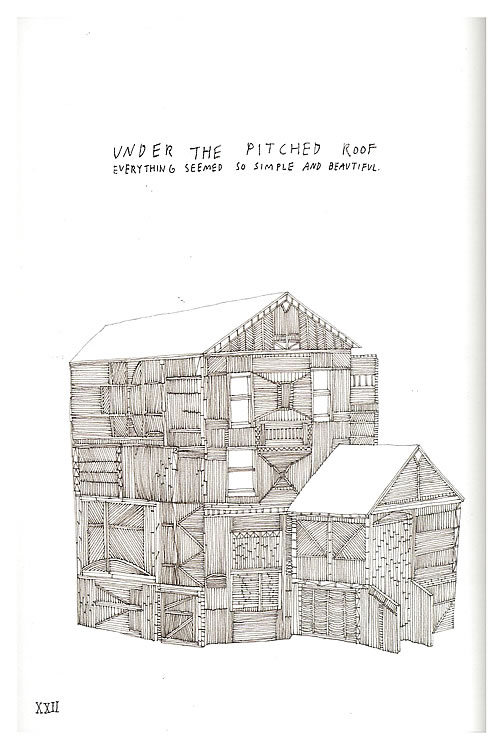 UNDER THE PITCHED ROOF
EVERYTHING SEEMED SO SIMPLE AND BEAUTIFUL.
XXII